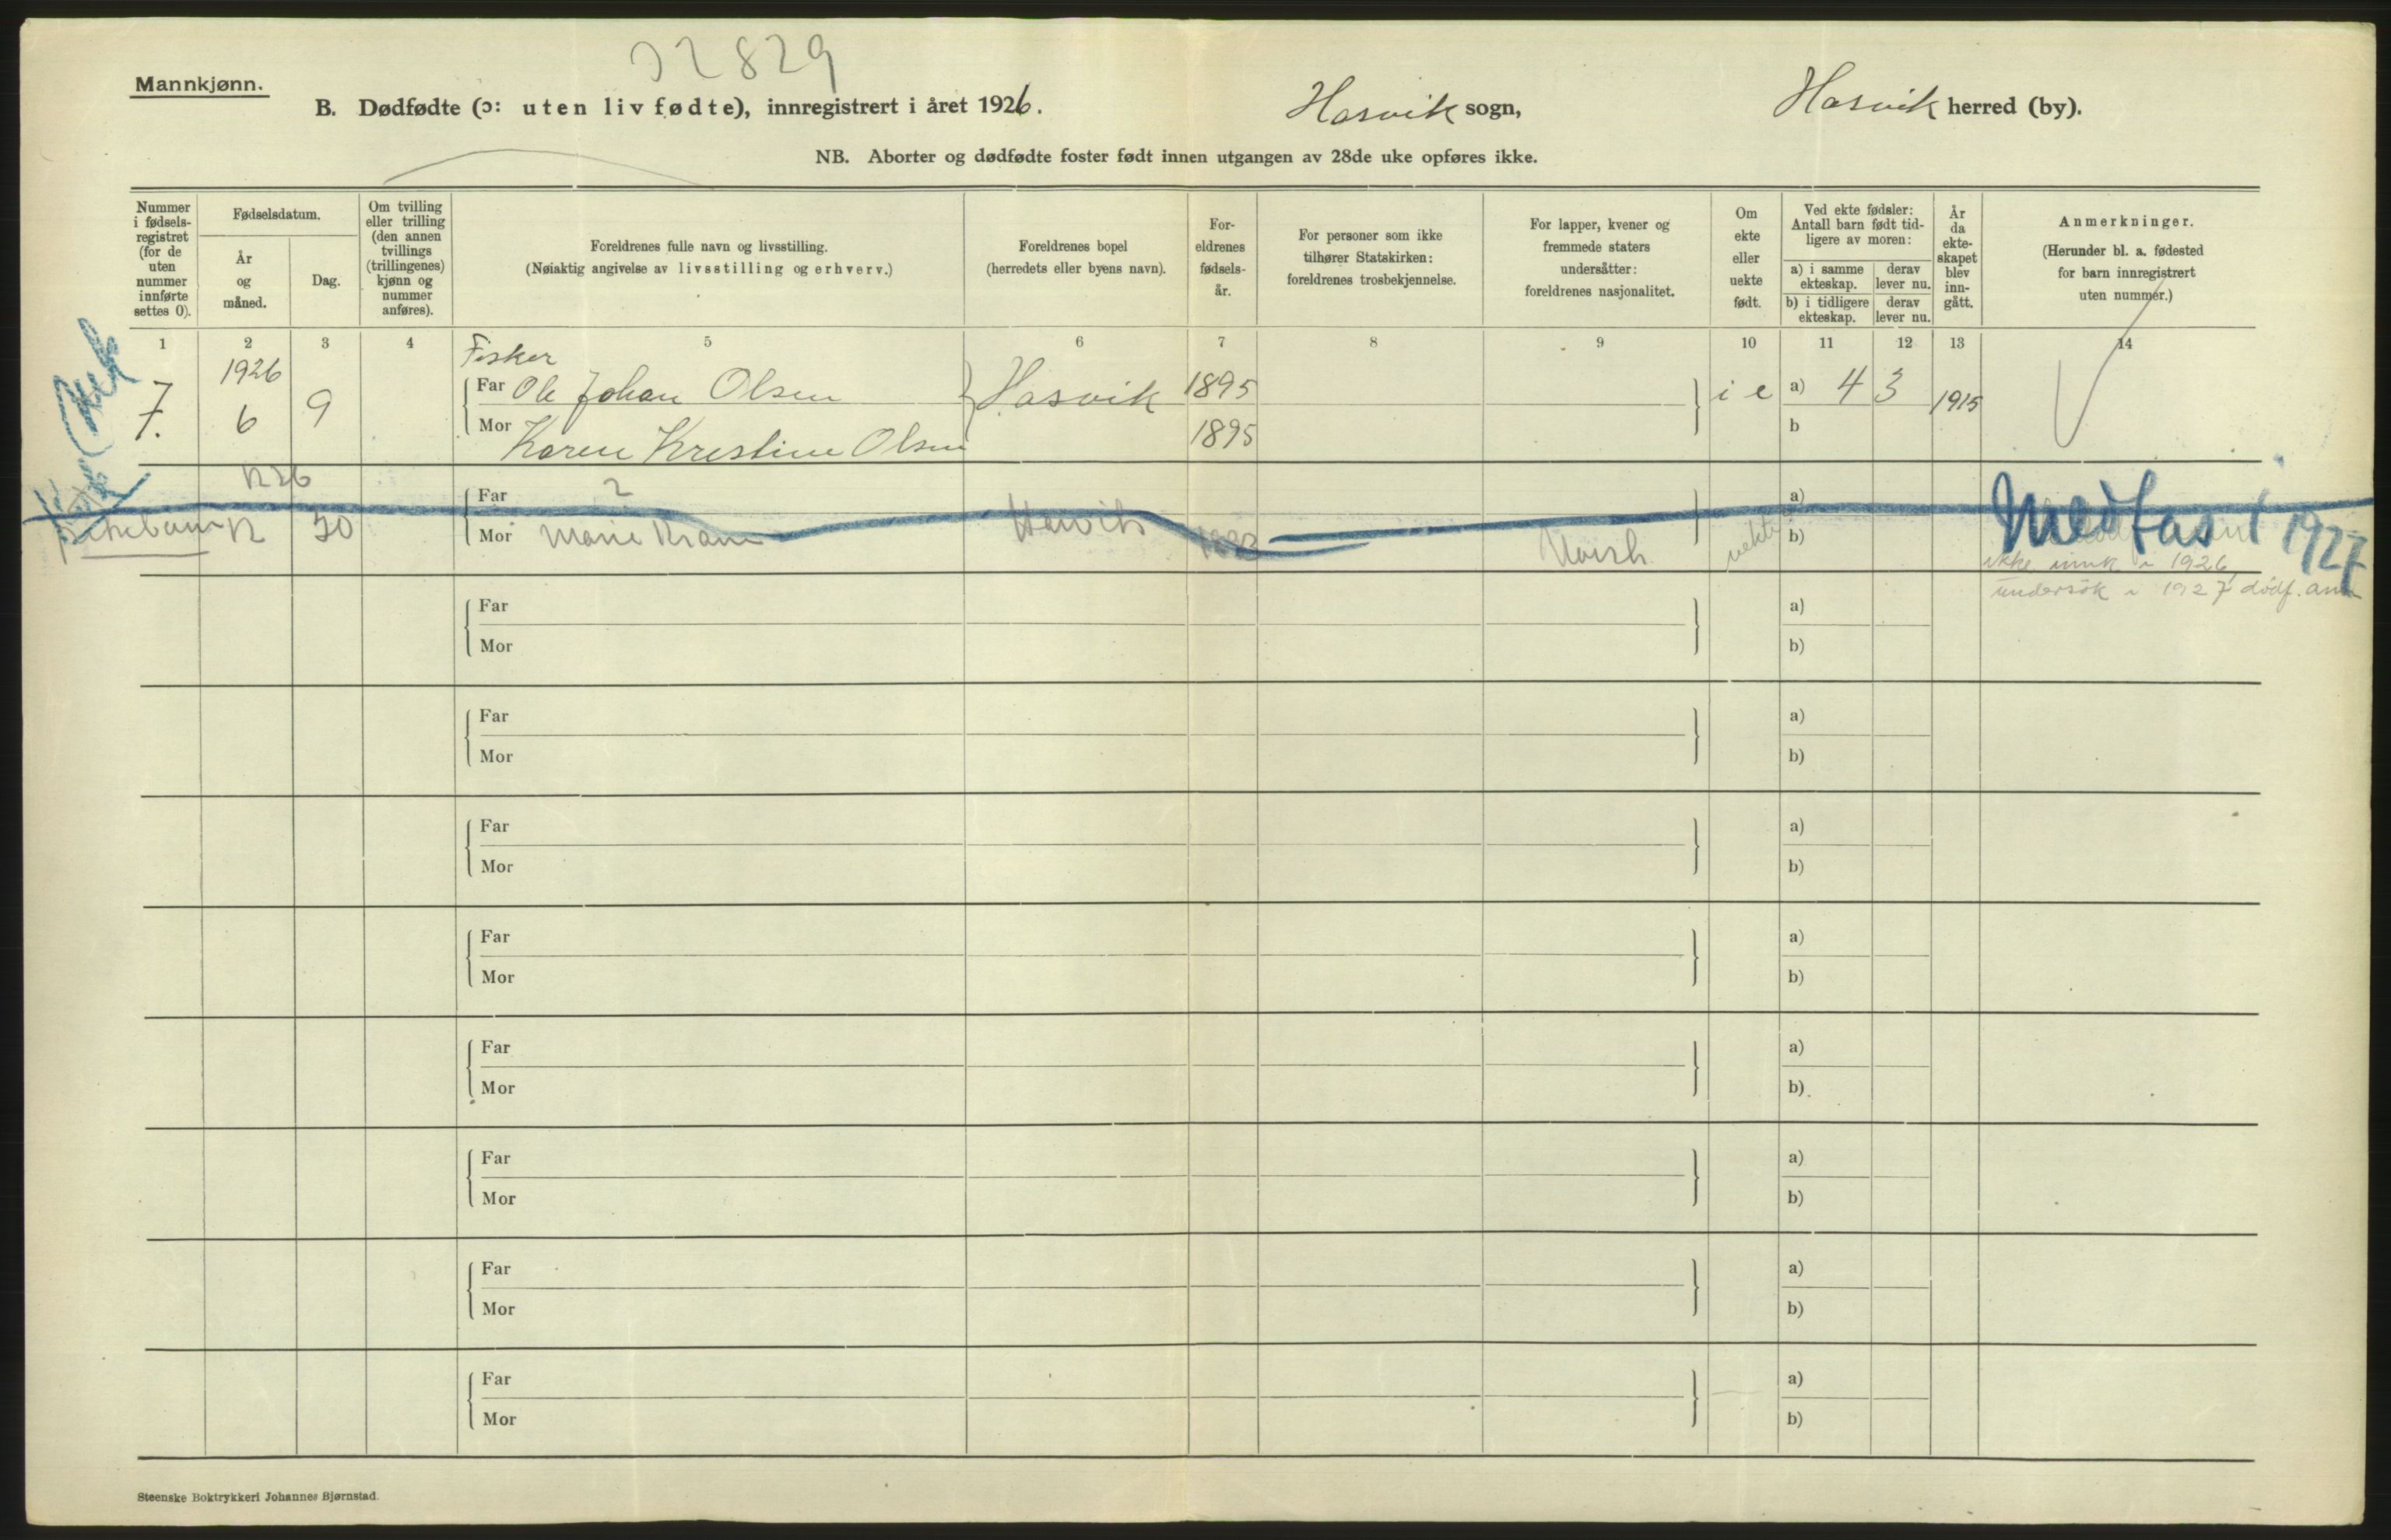 22829
Mannkjønn.
B. Dødfødte (ɔ: uten liv fødte), innregistrert i året 1926. Hasvik sogn, Hasvik herred (by).
NB. Aborter og dødfødte foster født innen utgangen av 28de uke opføres ikke.
Nummer i fødsels-registret (for de uten nummer innførte settes 0).
Fødselsdatum.
År og måned.
Dag.
Om tvilling eller trilling (den annen tvillings (trillingenes) kjønn og nummer anføres).
Foreldrenes fulle navn og livsstilling.
(Nøiaktig angivelse av livsstilling og erhverv.)
Foreldrenes bopel
(herredets eller byens navn).
For-eldrenes fødsels-år.
For personer som ikke tilhører Statskirken: foreldrenes trosbekjennelse.
For lapper, kvener og fremmede staters undersåtter: foreldrenes nasjonalitet.
Om ekte eller uekte født.
Ved ekte fødsler: Antall barn født tid-ligere av moren:
a) i samme ekteskap. derav lever nu.
b) i tidligere ekteskap. derav lever nu.
År da ekte-skapet blev inn-gått.
Anmerkninger.
(Herunder bl. a. fødested for barn innregistrert uten nummer.)
1 2 3 4 5 6 7 8 9 10 11 12 13 14
Fisker
7. 1926 6 9 Far Ole Johan Olsen Hasvik 1895 i e a) 4 3 1915
Mor Karen Kristine Olsen 1895 b
1926
Far ? a)
12 30 Mor Marie Hasvik Norsk uekte b)
Medtas i 1927
ikke innk i 1926
undersök i 1927 dödf. anm
Far a)
Mor b)
Far a)
Mor b)
Far a)
Mor b)
Far a)
Mor b)
Far a)
Mor b)
Far a)
Mor b)
Far a)
Mor b)
Far a)
Mor b)
Steenske Boktrykkeri Johannes Bjørnstad.